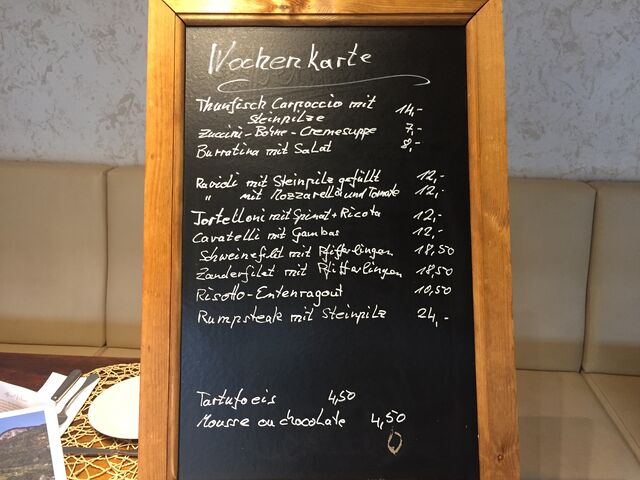 Wochenkarte
Thunfisch Carpoccio mit
Steinpilze 14,-
Zuccini-Bohne-Cremesuppe 7,-
Burratina mit Salat 8,-
Ravioli mit Steinpilz gefüllt 12,-
" mit Mozzarella und Tomate 12,-
Tortelloni mit Spinat + Ricota 12,-
Cavatelli mit Gambas 12,-
Schweinefilet mit Pfifferlingen 18,50
Zanderfilet mit Pfifferlingen 18,50
Risotto-Entenragout 10,50
Rumpsteak mit Steinpilz 24,-
Tartufoeis 4,50
Mousse au chocolate 4,50